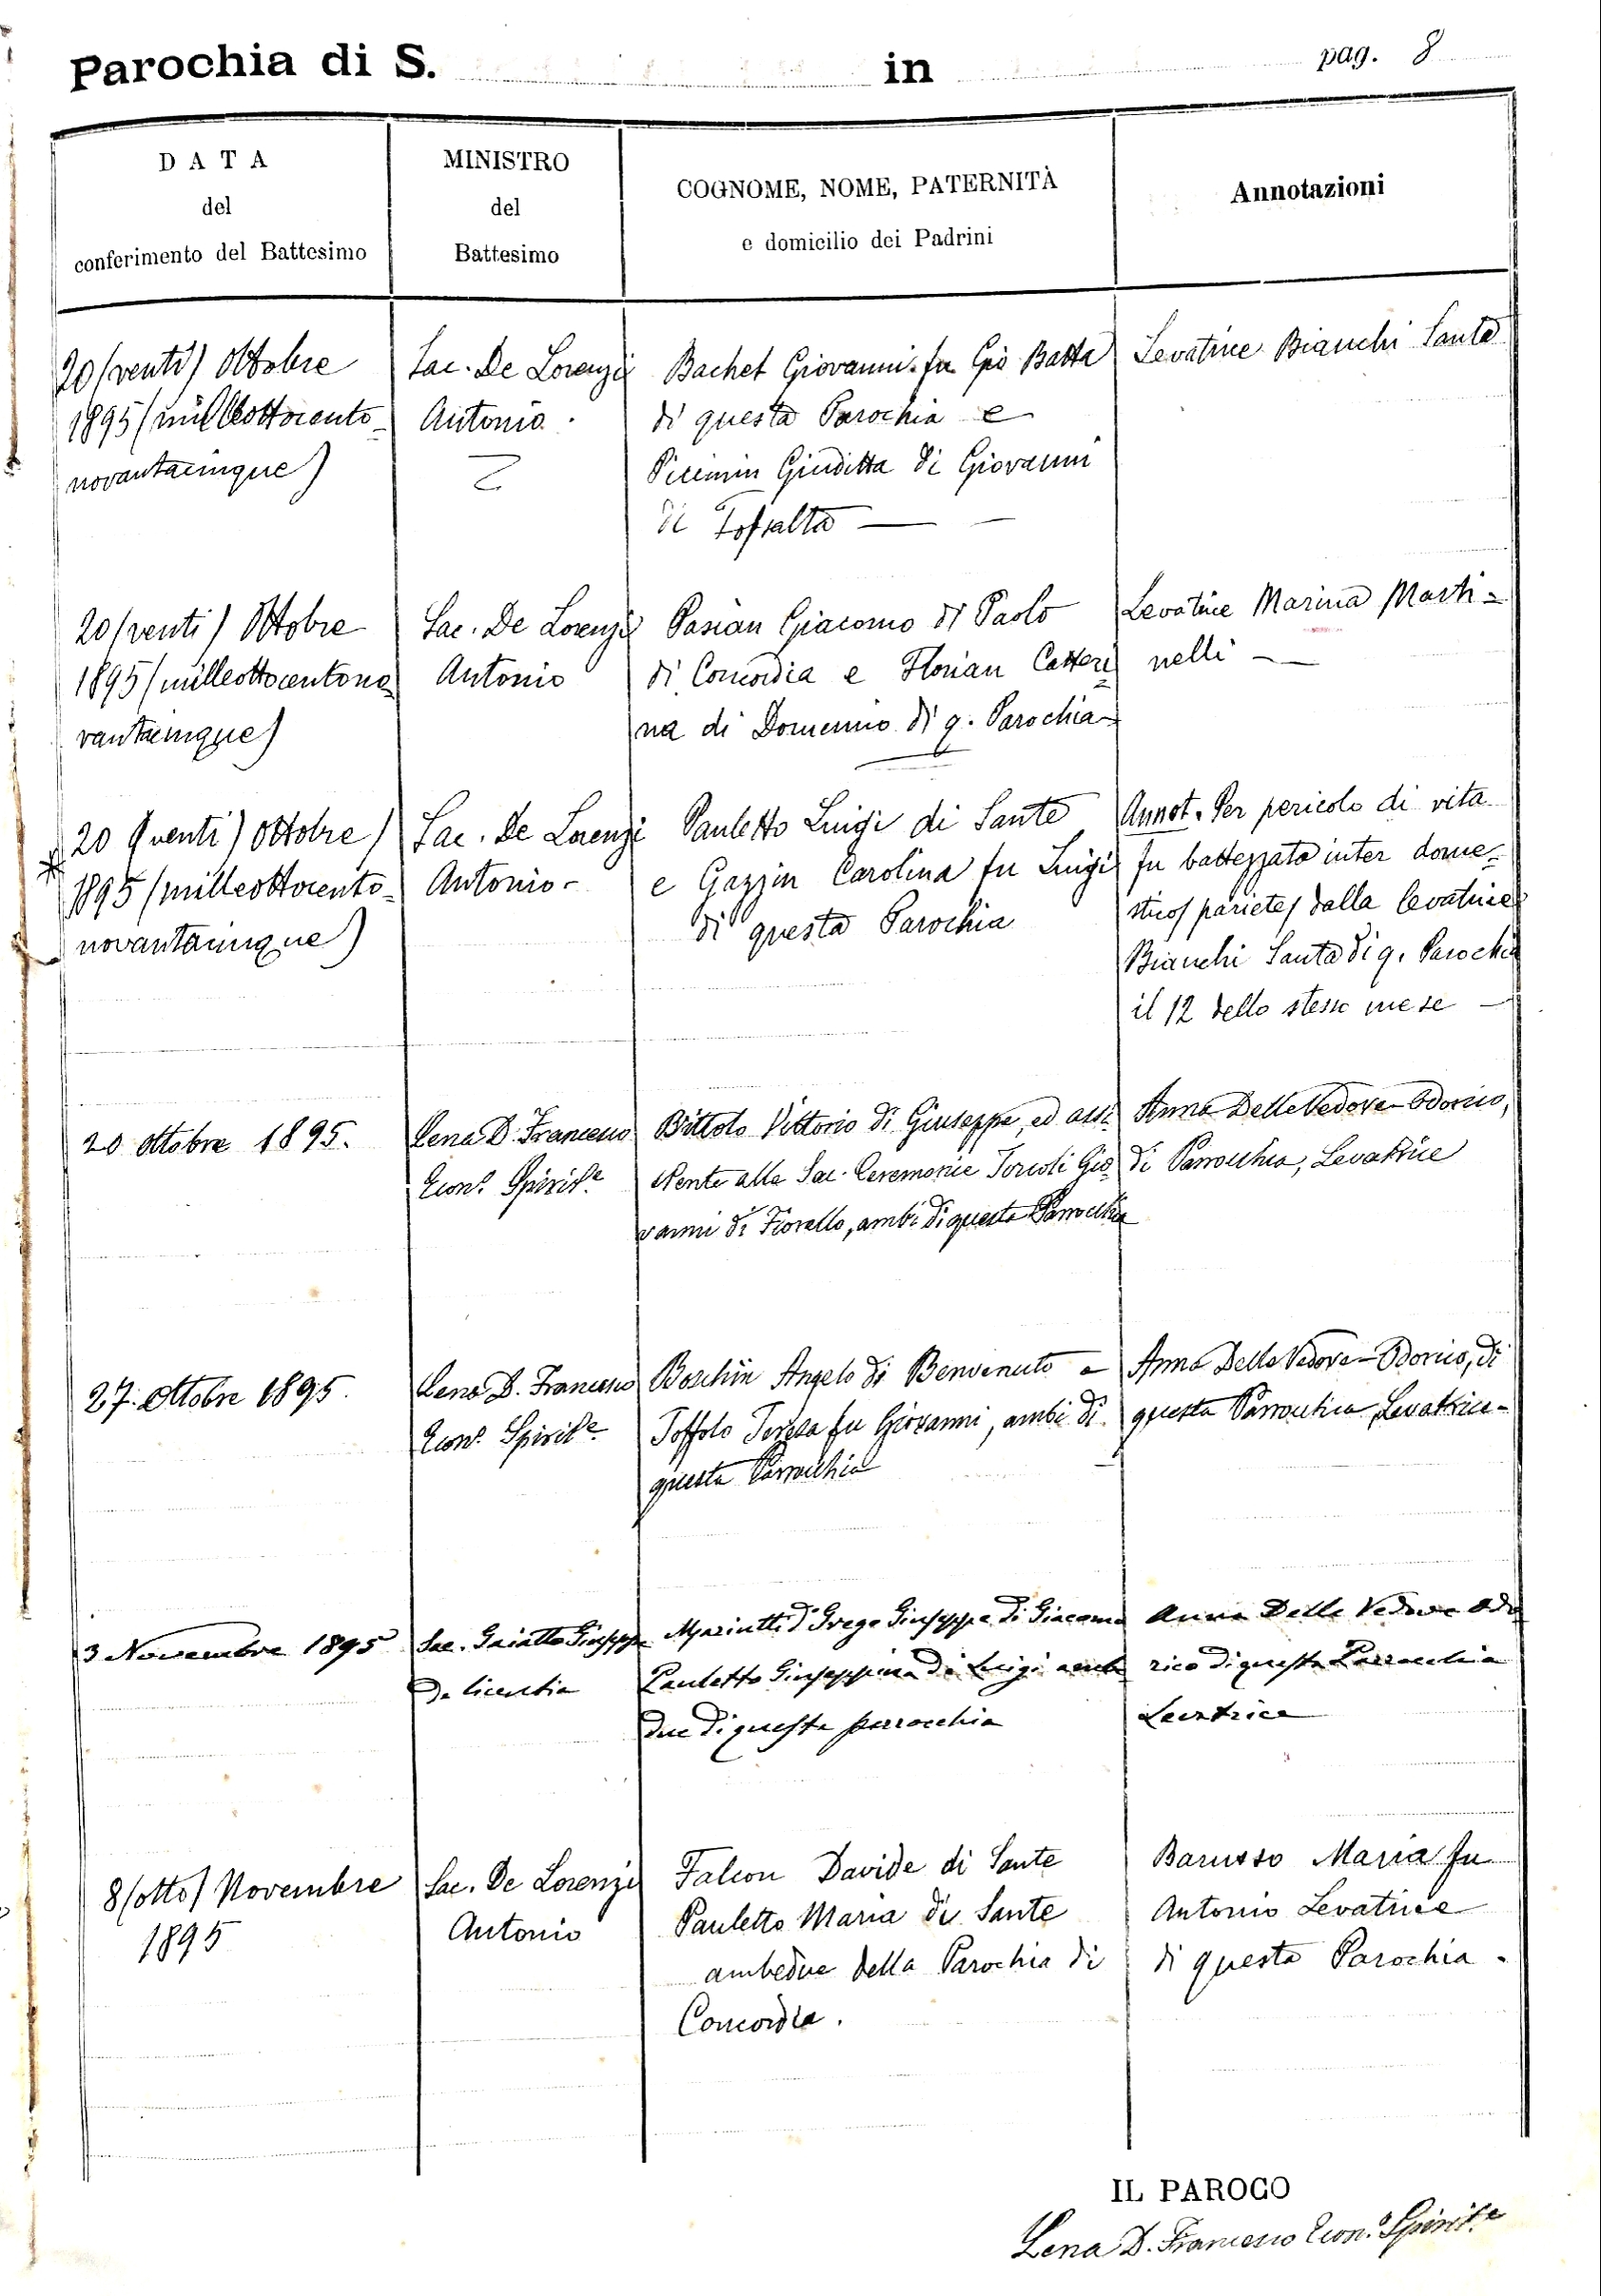 Parochia di S. in pag. 8
DATA
del
conferimento del Battesimo
MINISTRO
del
Battesimo
COGNOME, NOME, PATERNITÀ
e domicilio dei Padrini
Annotazioni
20 (venti) Ottobre
1895 (milleottocento
novantacinque)
Sac. De Lorenzi
Antonio
Bachet Giovanni fu Gio Batta
di questa Parochia e
Giuditta di Giovanni
di Fossalta
Levatrice Bianchi Santa
20 (venti) Ottobre
1895 (milleottocentono
vantacinque)
Sac. De Lorenzi
Antonio
Pasian Giacomo di Paolo
di Concordia e Florian Catteri
na di Domenico di q. Parochia
Levatrice Marina Marti=
nelli
20 (venti) Ottobre
1895 (milleottocento
novantacinque)
Sac. De Lorenzi
Antonio
Pauletto Luigi di Sante
e Gazzin Carolina fu Luigi
di questa Parochia
Annot. Per pericolo di vita
fu battezzata inter dome=
sticos parietes dalla levatrice
Bianchi Santa di q. Parochia
il 12 dello stesso mese
20 Ottobre 1895.
Lena D. Francesco
Econ.º Spirit.e
Bittolo Vittorio di Giuseppe, ed assi
stente alle Sac. Ceremonie Gio
vanni di Fiorello, ambi di questa Parrocchia
Anna Delle Vedove-Odorico,
di Parrocchia, Levatrice
27. Ottobre 1895.
Lena D. Francesco
Econ.º Spirit.e
Boschin Angelo di Benvenuto e
Toffolo Teresa fu Giovanni, ambi di
questa Parrocchia
Anna Delle Vedove-Odorico, di
questa Parrocchia, Levatrice-
3 Novembre 1895
Sac. Gaiatto Giuseppe
De licentia
Mariutti d Grego Giuseppe di Giacomo
Pauletto Giuseppina di Luigi ambe
due di questa parrocchia
Anna Delle Vedove Odo
rico di questa Parrocchia
Levatrice
8 (otto) Novembre
1895
Sac. De Lorenzi
Antonio
Falcon Davide di Sante
Pauletto Maria di Sante
ambedue della Parochia di
Concordia.
Barusso Maria fu
Antonio Levatrice
di questa Parochia.
IL PAROCO
Lena D. Francesco Econ.º Spirit.e